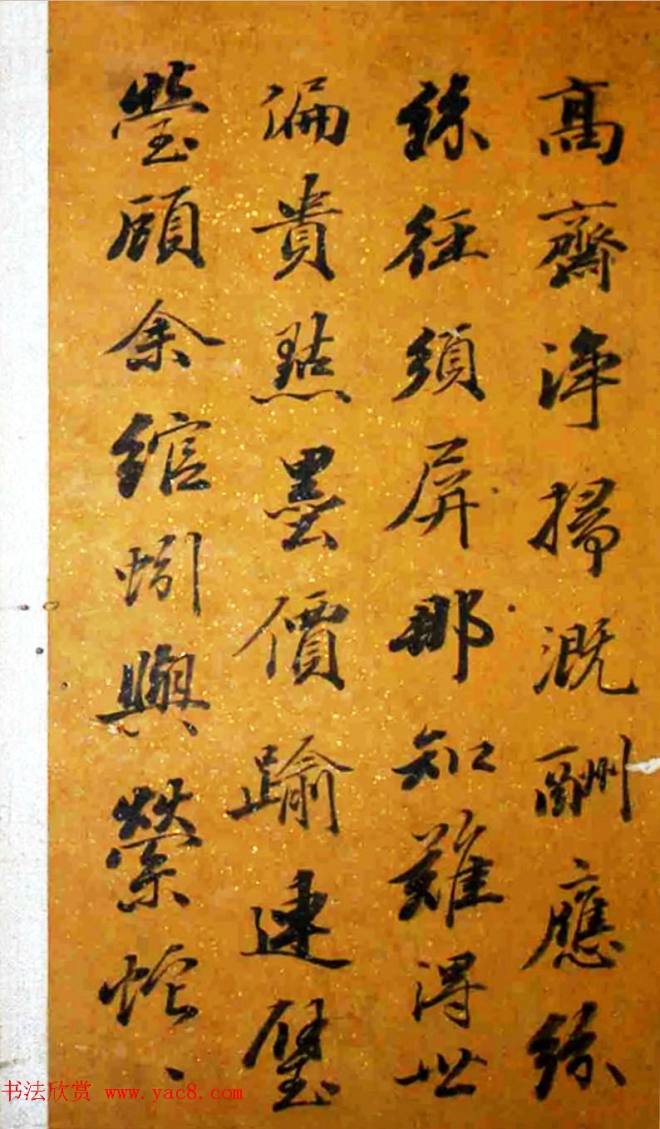 高齋淨掃溉酬應絲
絲徑須屏那知難得世
偏貴點墨價踰連璧
瑩頋余綰蚓與縈蛇、
书法欣赏 www.yac8.com